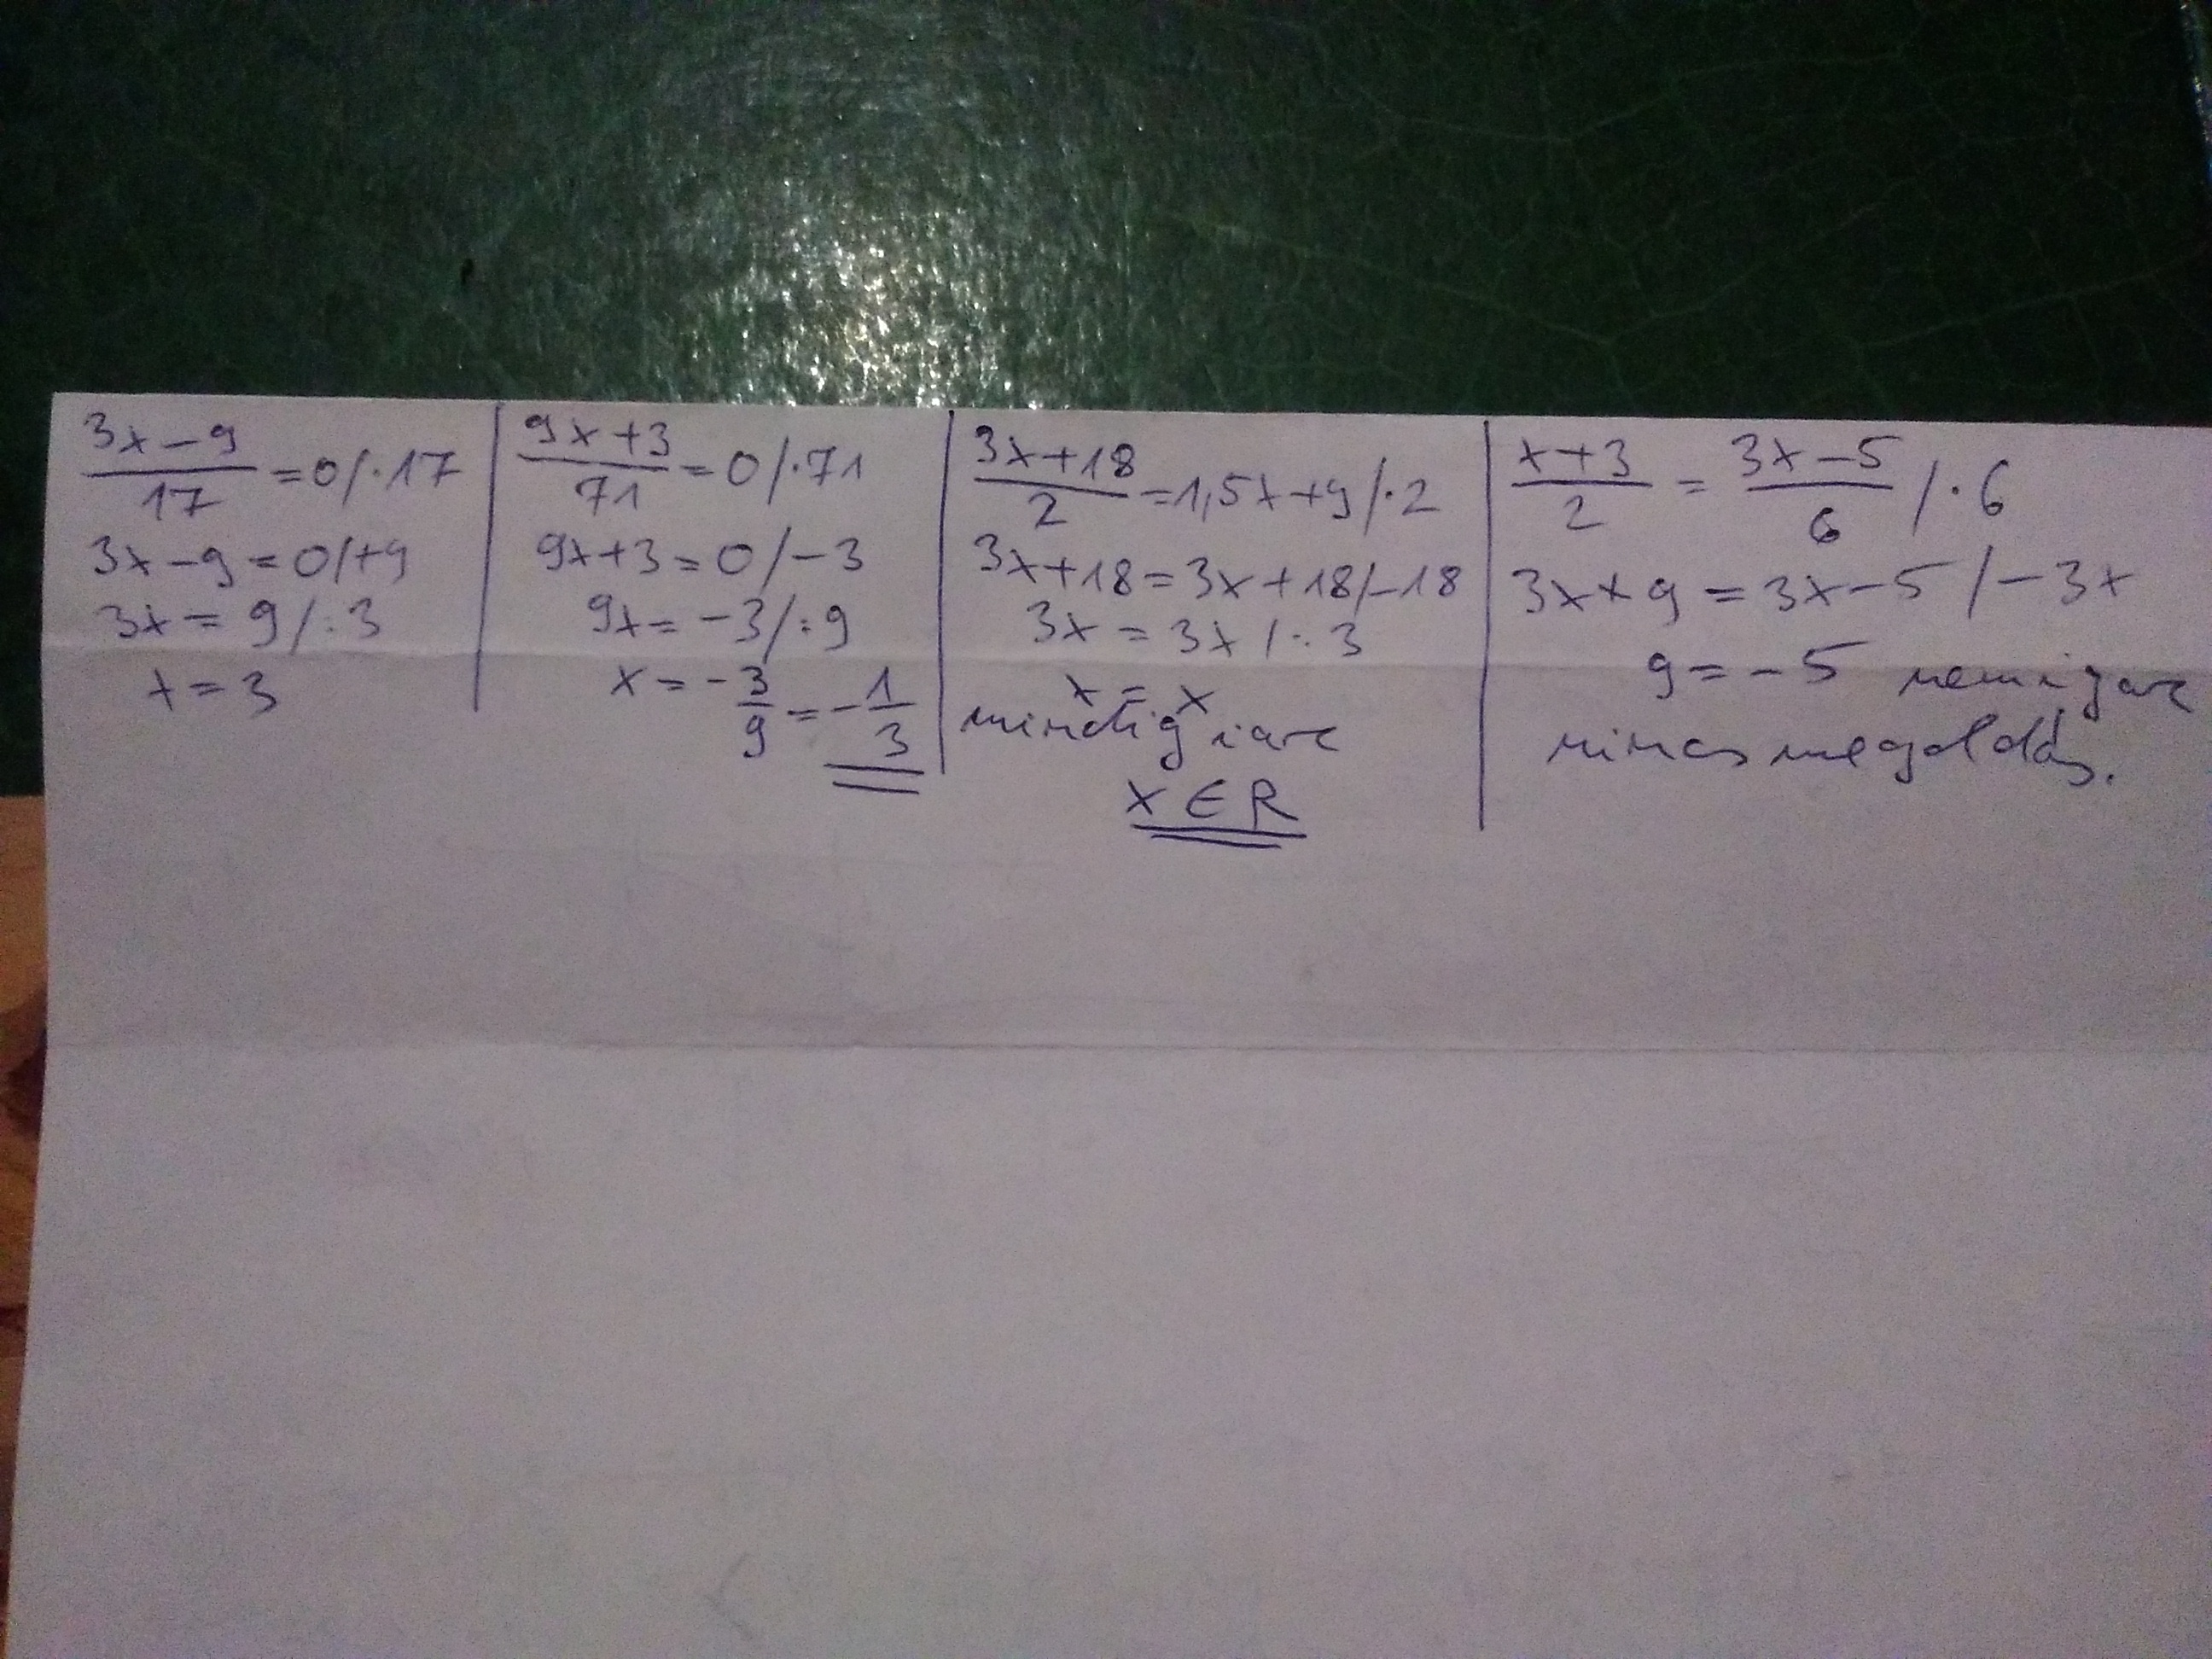 3x-9/17 = 0 /·17
3x-9 = 0 /+9
3x = 9 /:3
x = 3
9x+3/71 = 0 /·71
9x+3 = 0 /-3
9x = -3 /:9
x = -3/9 = -1/3
3x+18/2 = 1,5x+9 /·2
3x+18 = 3x+18 /-18
3x = 3x /:3
x = x
mindig igaz
x ∈ R
x+3/2 = 3x-5/6 /·6
3x+9 = 3x-5 /-3x
9 = -5 nem igaz
nincs megoldás.